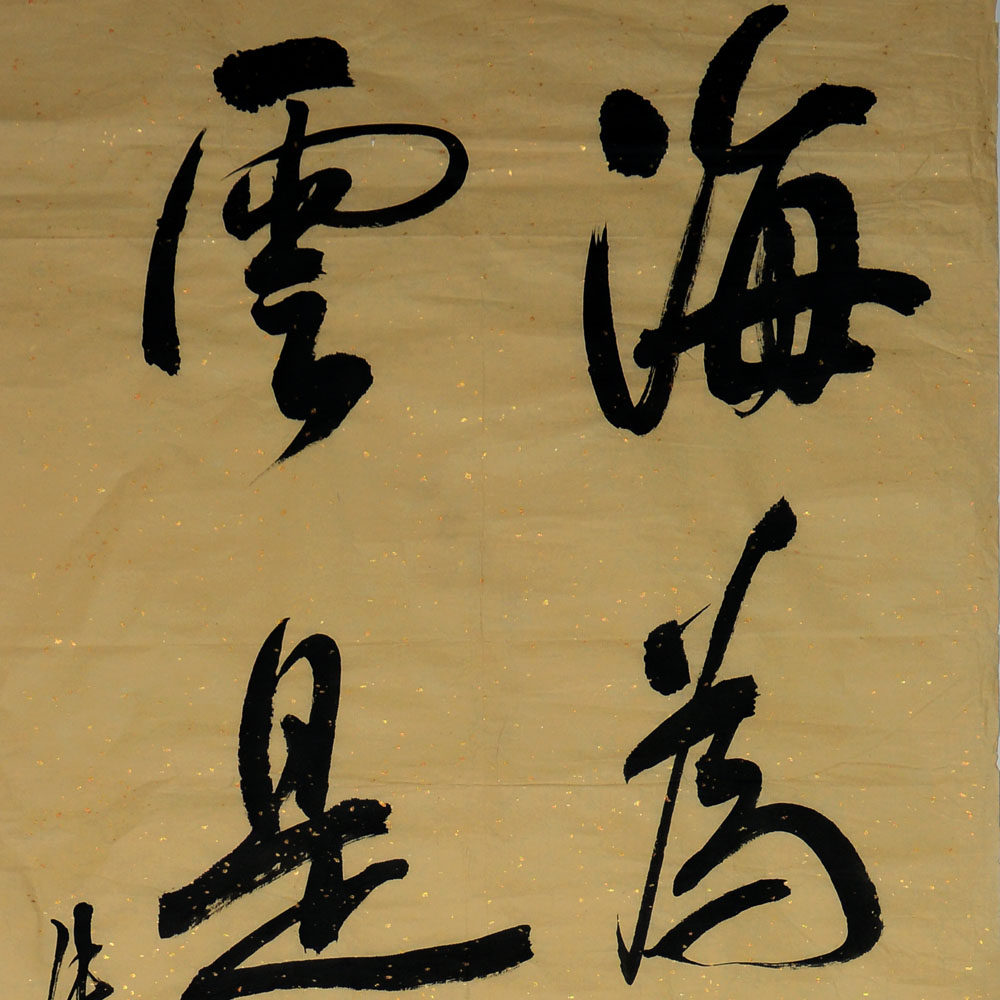 海為
雲是